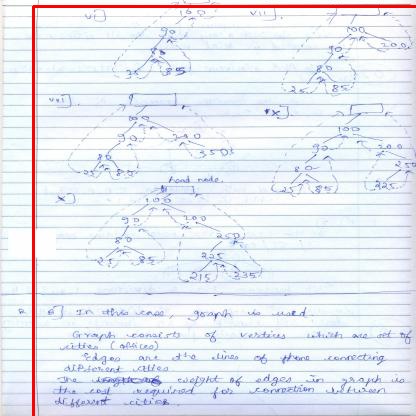 vi] vii]
100 100
90 90 200
80 80
25 85 25 85
viii] ix]
100 100
90 200 90 200
80 350 80 250
25 85 25 85 225
head node
x]
100
90 200
80 250
25 85 225
215 235
6] In this case, graph is used.
Graph consists of vertices which are set of
cities (offices)
Edges are the lines of phone connecting
different cities
The weight of edges in graph is
the cost required for connection between
different cities.